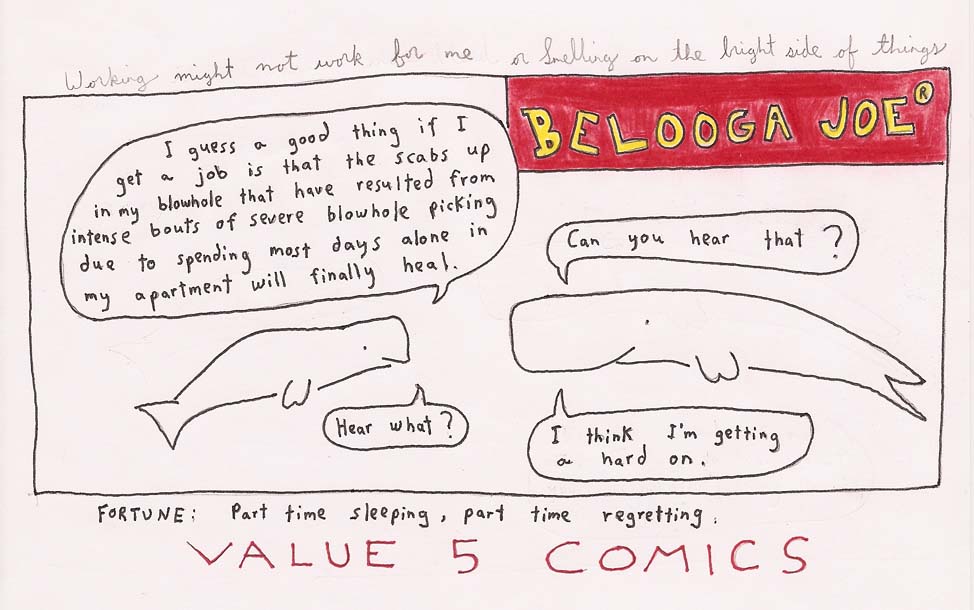 Working might not work for me or Smelling on the bright side of things
BELOOGA JOE®
I guess a good thing if I
get a job is that the scabs up
in my blowhole that have resulted from
intense bouts of severe blowhole picking
due to spending most days alone in
my apartment will finally heal.
Can you hear that?
Hear what?
I think I'm getting
a hard on.
FORTUNE: Part time sleeping, part time regretting.
VALUE 5 COMICS